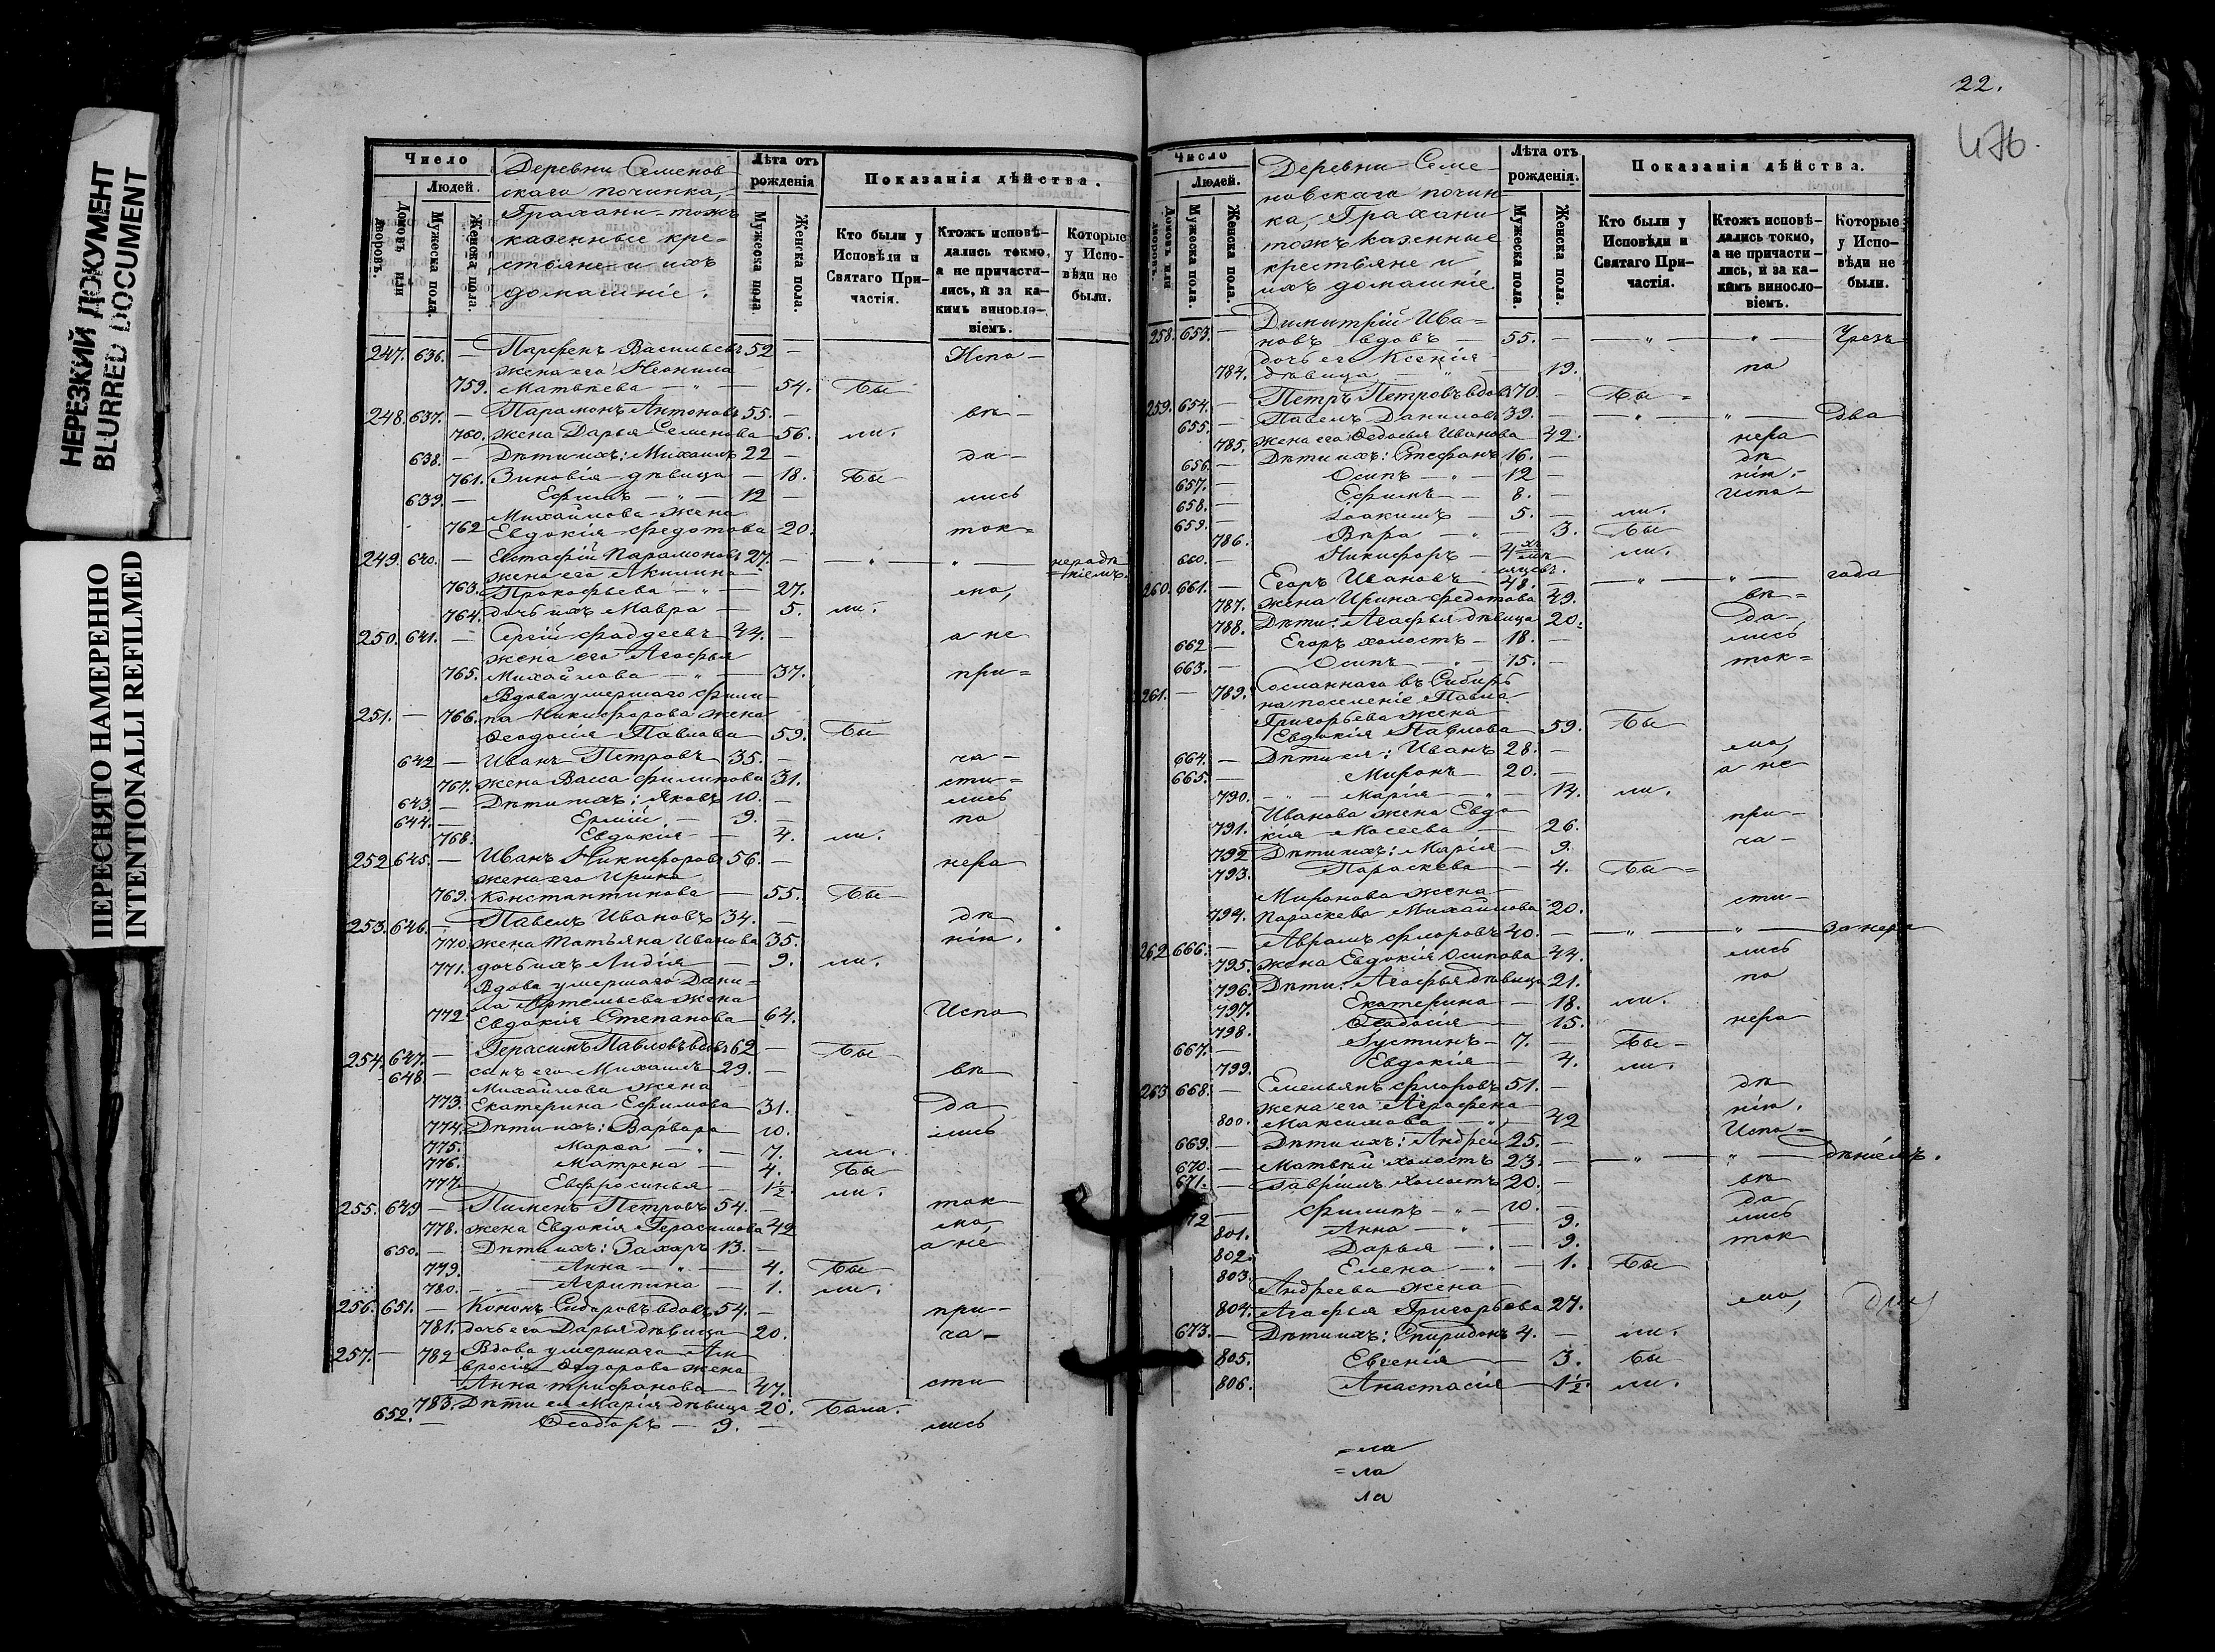 НЕРЕЗКИЙ ДОКУМЕНТ
BLURRED DOCUMENT
ПЕРЕСНЯТО НАМЕРЕННО
INTENTIONALLI REFILMED
Число
Людей.
Домовъ или дворовъ.
Мужеска пола.
Женска пола.
Деревни Семенов
скаго починка,
Грахани тожъ
казенные кре-
стьяне и ихъ
домашніе.
Лѣта отъ рожденія
Мужеска пола
Женска пола.
Показанія дѣйства.
Кто были у Исповѣди и Святаго Причастія.
Ктожъ исповѣ-
дались токмо,
а не причасти-
лись, и за ка-
кимъ винослo-
віемъ.
Которые
у Испо-
вѣди не
были.
247. 636. — Парфенъ Васильевъ 52 — Испо-
жена его Неонила
759. Матвѣева — " — 54. Бы
248. 637. — Парамонъ Антоновъ 55. — вѣ-
760. жена Дарья Семенова 56. ли.
638. — Дѣти ихъ: Михаилъ 22 — да-
761. Зиновія дѣвица — 18. Бы
639. — Ефимъ — " — 12 — лись
Михайлова жена
762 Евдокія Федотова 20. ток=
249. 640. — Евстафій Парамоновъ 27. — " — " — нерадѣ
=ніемъ.
жена его Акилина
763. Прокофьева — " — 27. мо,
764. дочь ихъ Мавра — 5. ли.
250. 641. — Сергій Фаддеевъ 44. — а не
жена его Агафья
765. Михайлова — " — 37. при=
Вдова умершаго Фили-
251. — 766. па Никифорова жена
Ѳеодосія Павлова 59. Бы
642 — Иванъ Петровъ 35. — ча-
767. жена Васса Филипова 31. сти=
643. — Дѣти ихъ: Яковъ 10. — лись
644. — Ермій — 9. — по
768. Евдокія — 4. ли.
252 645. — Иванъ Никифоровъ 56. — нера
жена его Ирина
769. Константинова — 55. Бы-
253. 646. — Павелъ Ивановъ 34. — дѣ
770. жена Татьяна Иванова 35. нію.
771. дочь ихъ Лидія — 9. ли.
Вдова умершаго Дани-
ла Артемьева жена
772 Евдокія Степанова 64. Испо
254. 647. — Герасимъ Павловъ вдовъ 62 — Бы-
648. — сынъ его Михаилъ 29. — вѣ
Михайлова жена
773. Екатерина Ефимова 31. Да
774. Дѣти ихъ: Варвара 10. лись
775. Марѳа — " — 7. ли.
776. Матрена — 4. Бы
777. Евфросинья 1½. ли.
255. 649 — Пименъ Петровъ 54. — ток-
778. жена Евдокія Герасимова 42 мо,
650. — Дѣти ихъ: Захаръ 13. — а не
779. Анна — " — 4. Бы
780. — " — Агрипина 1. ли.
256. 651. — Кононъ Сидоровъ вдовъ 54. — при-
781. дочь его Дарья дѣвица 20. ча-
257. — 782 Вдова умершаго Ам
вросія Ѳедорова жена
Анна Трифонова 47. сти
783. Дѣти ея Марія дѣвица 20. Была.
652. — Ѳеодоръ — 9. — лись
22.
476.
Число
Людей.
Домовъ или дворовъ.
Мужеска пола.
Женска пола.
Деревни Семе-
новскаго почин
ка, Грахани
тожъ казенные
крестьяне и
ихъ домашніе.
Лѣта отъ рожденія.
Мужеска пола.
Женска пола.
Показанія дѣйства.
Кто были у Исповѣди и Святаго Причастія.
Ктожъ исповѣ-
дались токмо,
а не причасти-
лись, и за ка-
кимъ винослo-
віемъ.
Которые
у Испо-
вѣди не
были.
Димитрій Ива=
258. 653. — новъ вдовъ — 55. — " — " — Чрезъ
дочь его Ксенія
784. дѣвица — " — 19. по
259. 654. — Петръ Петровъ вдовъ 70. — Бы=
655. — Павелъ Даниловъ 39. — " — " — Два
785. жена его Ѳедосья Иванова 42. нера
656. — Дѣти ихъ: Стефанъ 16. — дѣ
657. — Осипъ — " — 12 — нію.
658. — Ефимъ — 8. — Испо-
659. — Іоакимъ — 5. — ли.
786. Вѣра — " — 3. Бы
660. — Никифоръ — 4хъ мѣ-
сяцевъ. ли.
260. 661. — Егоръ Ивановъ 48. — " — " — года
787. жена Ирина Федотова 49. вѣ=
788. Дѣти: Агафья дѣвица 20. Да-
662 — Егоръ холостъ — 18. — лись
663. — Осипъ — " — 15. — ток=
261. — 789. Сосланнаго въ Сибирь
на поселеніе Павла
Григорьева жена
Евдокія Павлова 59. Бы
664. — Дѣти ея: Иванъ 28. — мо,
665. — Миронъ 20. — а не
790. — " — Марія — " — 14. ли.
Иванова жена Евдо
791. кія Мосеева — 26. при-
792 Дѣти ихъ: Марія — 9. ча-
793. Параскева — 4. Бы=
Миронова жена
794. Параскева Михайлова 20. сти-
262 666. — Аврамъ Флоровъ 40. — " — " — за нера
795. жена Евдокія Осипова 44. лись
796. Дѣти: Агафья дѣвица 21. по
797. Екатерина — 18. ли.
798. Ѳеодосія — 15. нера
667. — Іустинъ — 7. — Бы-
799. Евдокія — 4. ли.
263 668. — Емельянъ Флоровъ 51. — дѣ
жена его Аграфена
800. Максимова — " — 42 нію.
669. — Дѣти ихъ: Андрей 25. — Испо=
670. — Матвѣй холостъ 23. — " — " — дѣніемъ.
671. — Гавріилъ холостъ 20. — вѣ
672 — Филипъ — " — 10. — да
801. Анна — " — 9. лись
802. Дарья — " — 9. ток
803. Елена — " — 1. Бы
Андреева жена
804. Агафья Григорьева 27. мо,
673. — Дѣти ихъ: Спиридонъ 4. — ли.
805. Евгенія — 3. Бы
806. Анастасія 1½. ли.
=ла
=ла
ла